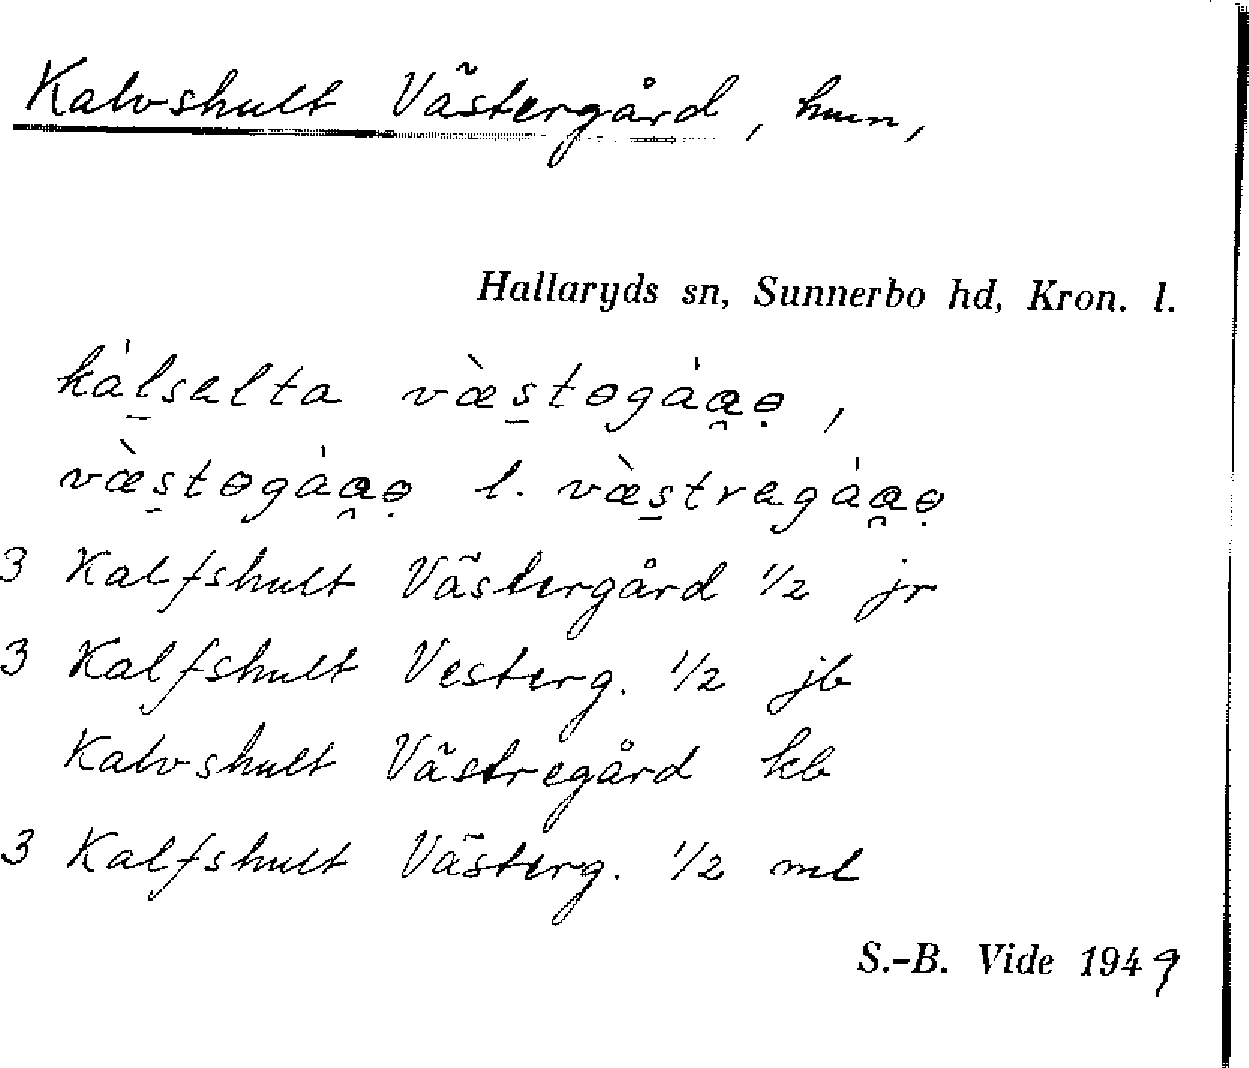 Kalvshult Västergård, hmn,
Hallaryds sn, Sunnerbo hd, Kron. l.
kàl̲sælta væ̀s̲tɵgȧa̯ɵ̣,
væ̀s̲tɵgȧa̯ɵ̣ l. væ̀s̲trægȧa̯ɵ̣
3 Kalfshult Västergård 1/2 jr
3 Kalfshult Vesterg. 1/2 jb
Kalvshult Västregård kb
3 Kalfshult Västerg. 1/2 ml
S.-B. Vide 1949